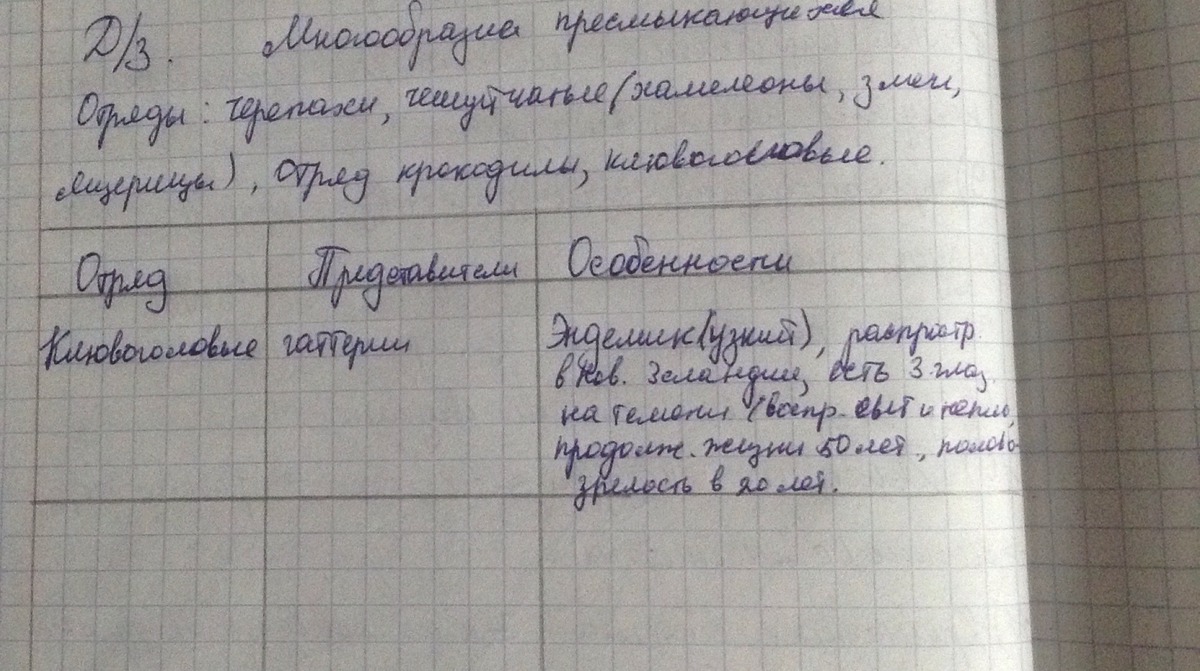 Д/З. Многообразие пресмыкающихся
Отряды: черепахи, чешуйчатые (хамелеоны, змеи,
ящерицы), отряд крокодилы, клювоголовые.
Отряд Представители Особенности
Клювоголовые гаттерии Эндемик (узкий), распростр.
в Нов. Зеландии, есть 3 глаз
на темени (воспр. свет и тепло,
продолж. жизни 50 лет, полово
зрелость в 20 лет.